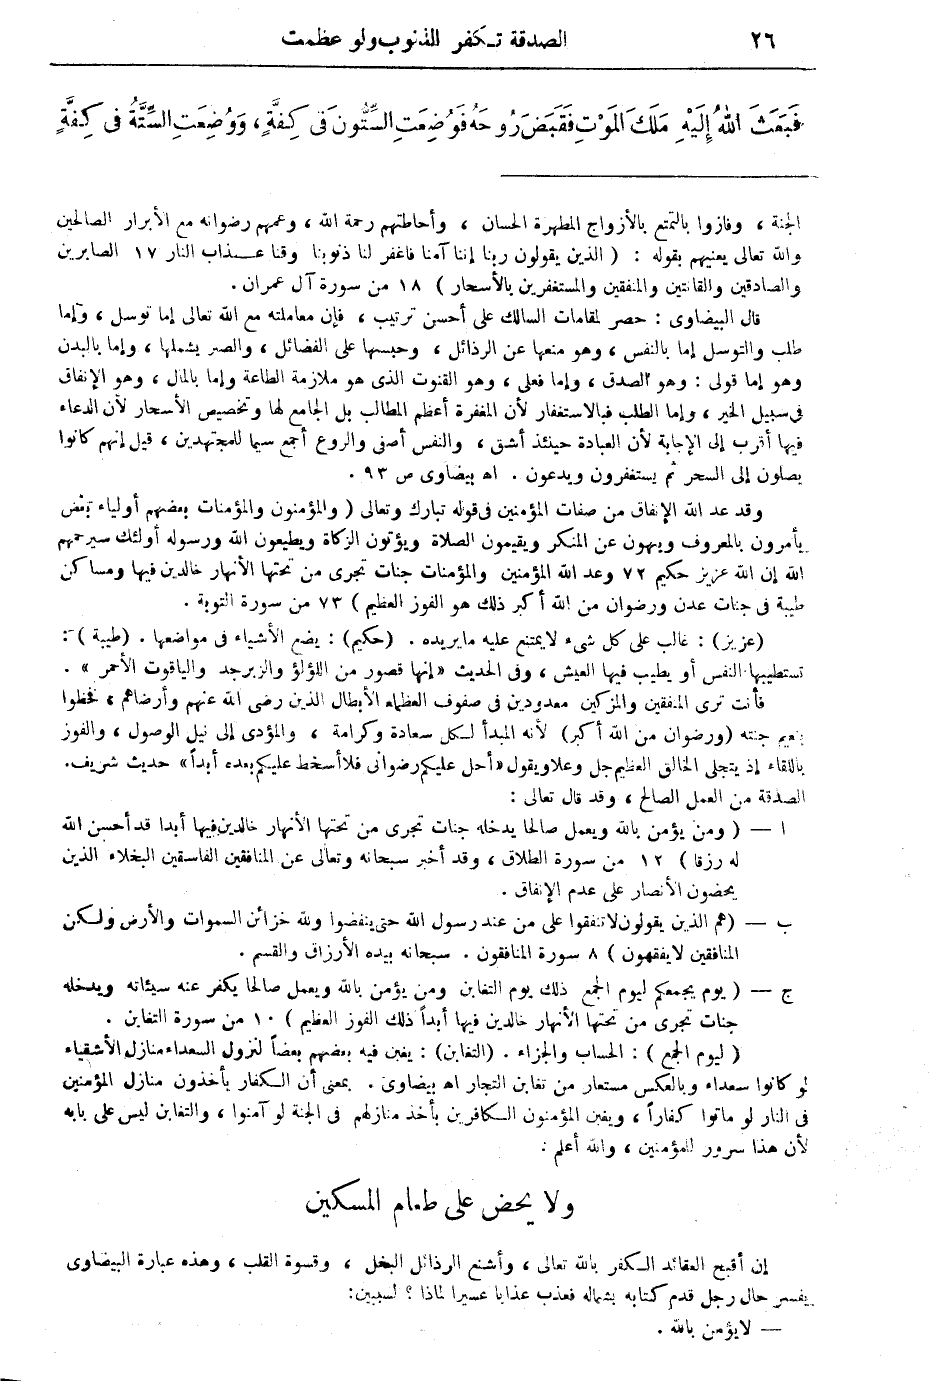 ٢٦
الصدقة تكفر الذنوب ولو عظمت
فَبَعَثَ اللهُ إِلَيْهِ مَلَكَ المَوْتِ فَقَبَضَ رُوحَهُ فَوُضِعَتِ السِّتُّونَ فى كِفَّةٍ، وَوُضِعَتِ السِّتَّةُ فى كِفَّةٍ
الجنة ، وفازوا بالتمتع بالأزواج المطهرة الحسان ، وأحاطتهم رحمة الله ، وعمهم رضوانه مع الأبرار الصالحين
والله تعالى يعنيهم بقوله : ( الذين يقولون ربنا إننا آمنا فاغفر لنا ذنوبنا وقنا عذاب النار ١٧ الصابرين
والصادقين والقانتين والمنفقين والمستغفرين بالأسحار ) ١٨ من سورة آل عمران .
قال البيضاوى : حصر لمقامات السالك على أحسن ترتيب ، فإن معاملته مع الله تعالى إما توسل ، وإما
طلب والتوسل إما بالنفس ، وهو منعها عن الرذائل ، وحبسها على الفضائل ، والصبر يشملها ، وإما بالبدن
وهو إما قولى : وهو الصدق ، وإما فعلى ، وهو القنوت الذى هو ملازمة الطاعة وإما بالمال ، وهو الإنفاق
فى سبيل الخير ، وإما الطلب فبالاستغفار لأن المغفرة أعظم المطالب بل الجامع لها وتخصيص الأسحار لأن الدعاء
فيها أقرب إلى الإجابة لأن العبادة حينئذ أشق ، والنفس أصفى والروع أجمع سيما للمجتهدين ، قيل إنهم كانوا
يصلون إلى السحر ثم يستغفرون ويدعون . اه بيضاوى ص ٩٣ .
وقد عد الله الإنفاق من صفات المؤمنين فى قوله تبارك وتعالى ( والمؤمنون والمؤمنات بعضهم أولياء بعض
يأمرون بالمعروف وينهون عن المنكر ويقيمون الصلاة ويؤتون الزكاة ويطيعون الله ورسوله أولئك سيرحمهم
الله إن الله عزيز حكيم ٧٢ وعد الله المؤمنين والمؤمنات جنات تجرى من تحتها الأنهار خالدين فيها ومساكن
طيبة فى جنات عدن ورضوان من الله أكبر ذلك هو الفوز العظيم ) ٧٣ من سورة التوبة .
(عزيز) : غالب على كل شىء لا يمتنع عليه ما يريده . (حكيم) : يضع الأشياء فى مواضعها . (طيبة ) :
تستطيبها النفس أو يطيب فيها العيش ، وفى الحديث «إنها قصور من اللؤلؤ والزبرجد والياقوت الأحمر » .
فأنت ترى المنفقين والمزكين معدودين فى صفوف العظماء الأبطال الذين رضى الله عنهم وأرضاهم ، فخطوا
بنعيم جنته (ورضوان من الله أكبر) لأنه المبدأ لكل سعادة وكرامة ، والمؤدى إلى نيل الوصول ، والفوز
باللقاء إذ يتجلى الخالق العظيم جل وعلا ويقول «أحل عليكم رضوانى فلا أسخط عليكم بعده أبداً» حديث شريف.
الصدقة من العمل الصالح ، وقد قال تعالى :
ا — ( ومن يؤمن بالله ويعمل صالحا يدخله جنات تجرى من تحتها الأنهار خالدين فيها أبدا قد أحسن الله
له رزقا ) ١٢ من سورة الطلاق ، وقد أخبر سبحانه وتعالى عن المنافقين الفاسقين البخلاء الذين
يحضون الأنصار على عدم الإنفاق .
ب — (هم الذين يقولون لا تنفقوا على من عند رسول الله حتى ينفضوا ولله خزائن السموات والأرض ولكن
المنافقين لا يفقهون ) ٨ سورة المنافقون . سبحانه بيده الأرزاق والقسم .
ج — ( يوم يجمعكم ليوم الجمع ذلك يوم التغابن ومن يؤمن بالله ويعمل صالحا يكفر عنه سيئاته ويدخله
جنات تجرى من تحتها الأنهار خالدين فيها أبداً ذلك الفوز العظيم ) ١٠ من سورة التغابن .
( ليوم الجمع ) : الحساب والجزاء . (التغابن) : يغبن فيه بعضهم بعضاً لنزول السعداء منازل الأشقياء
لو كانوا سعداء وبالعكس مستعار من تغابن التجار اه بيضاوى . بمعنى أن الكفار يأخذون منازل المؤمنين
فى النار لو ماتوا كفاراً ، ويغبن المؤمنون الكافرين بأخذ منازلهم فى الجنة لو آمنوا ، والتغابن ليس على بابه
لأن هذا سرور للمؤمنين ، والله أعلم :
ولا يحض على طعام المسكين
إن أقبح العقائد الكفر بالله تعالى ، وأشنع الرذائل البخل ، وقسوة القلب ، وهذه عبارة البيضاوى
يفسر حال رجل قدم كتابه بشماله فعذب عذابا عسيرا لماذا ؟ لسببين:
— لا يؤمن بالله .